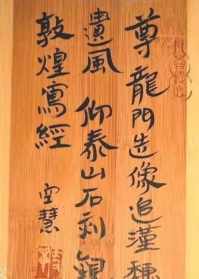 尊龍門造像追漢魏
遺風 仰泰山石刻
敦煌寫經
空慧